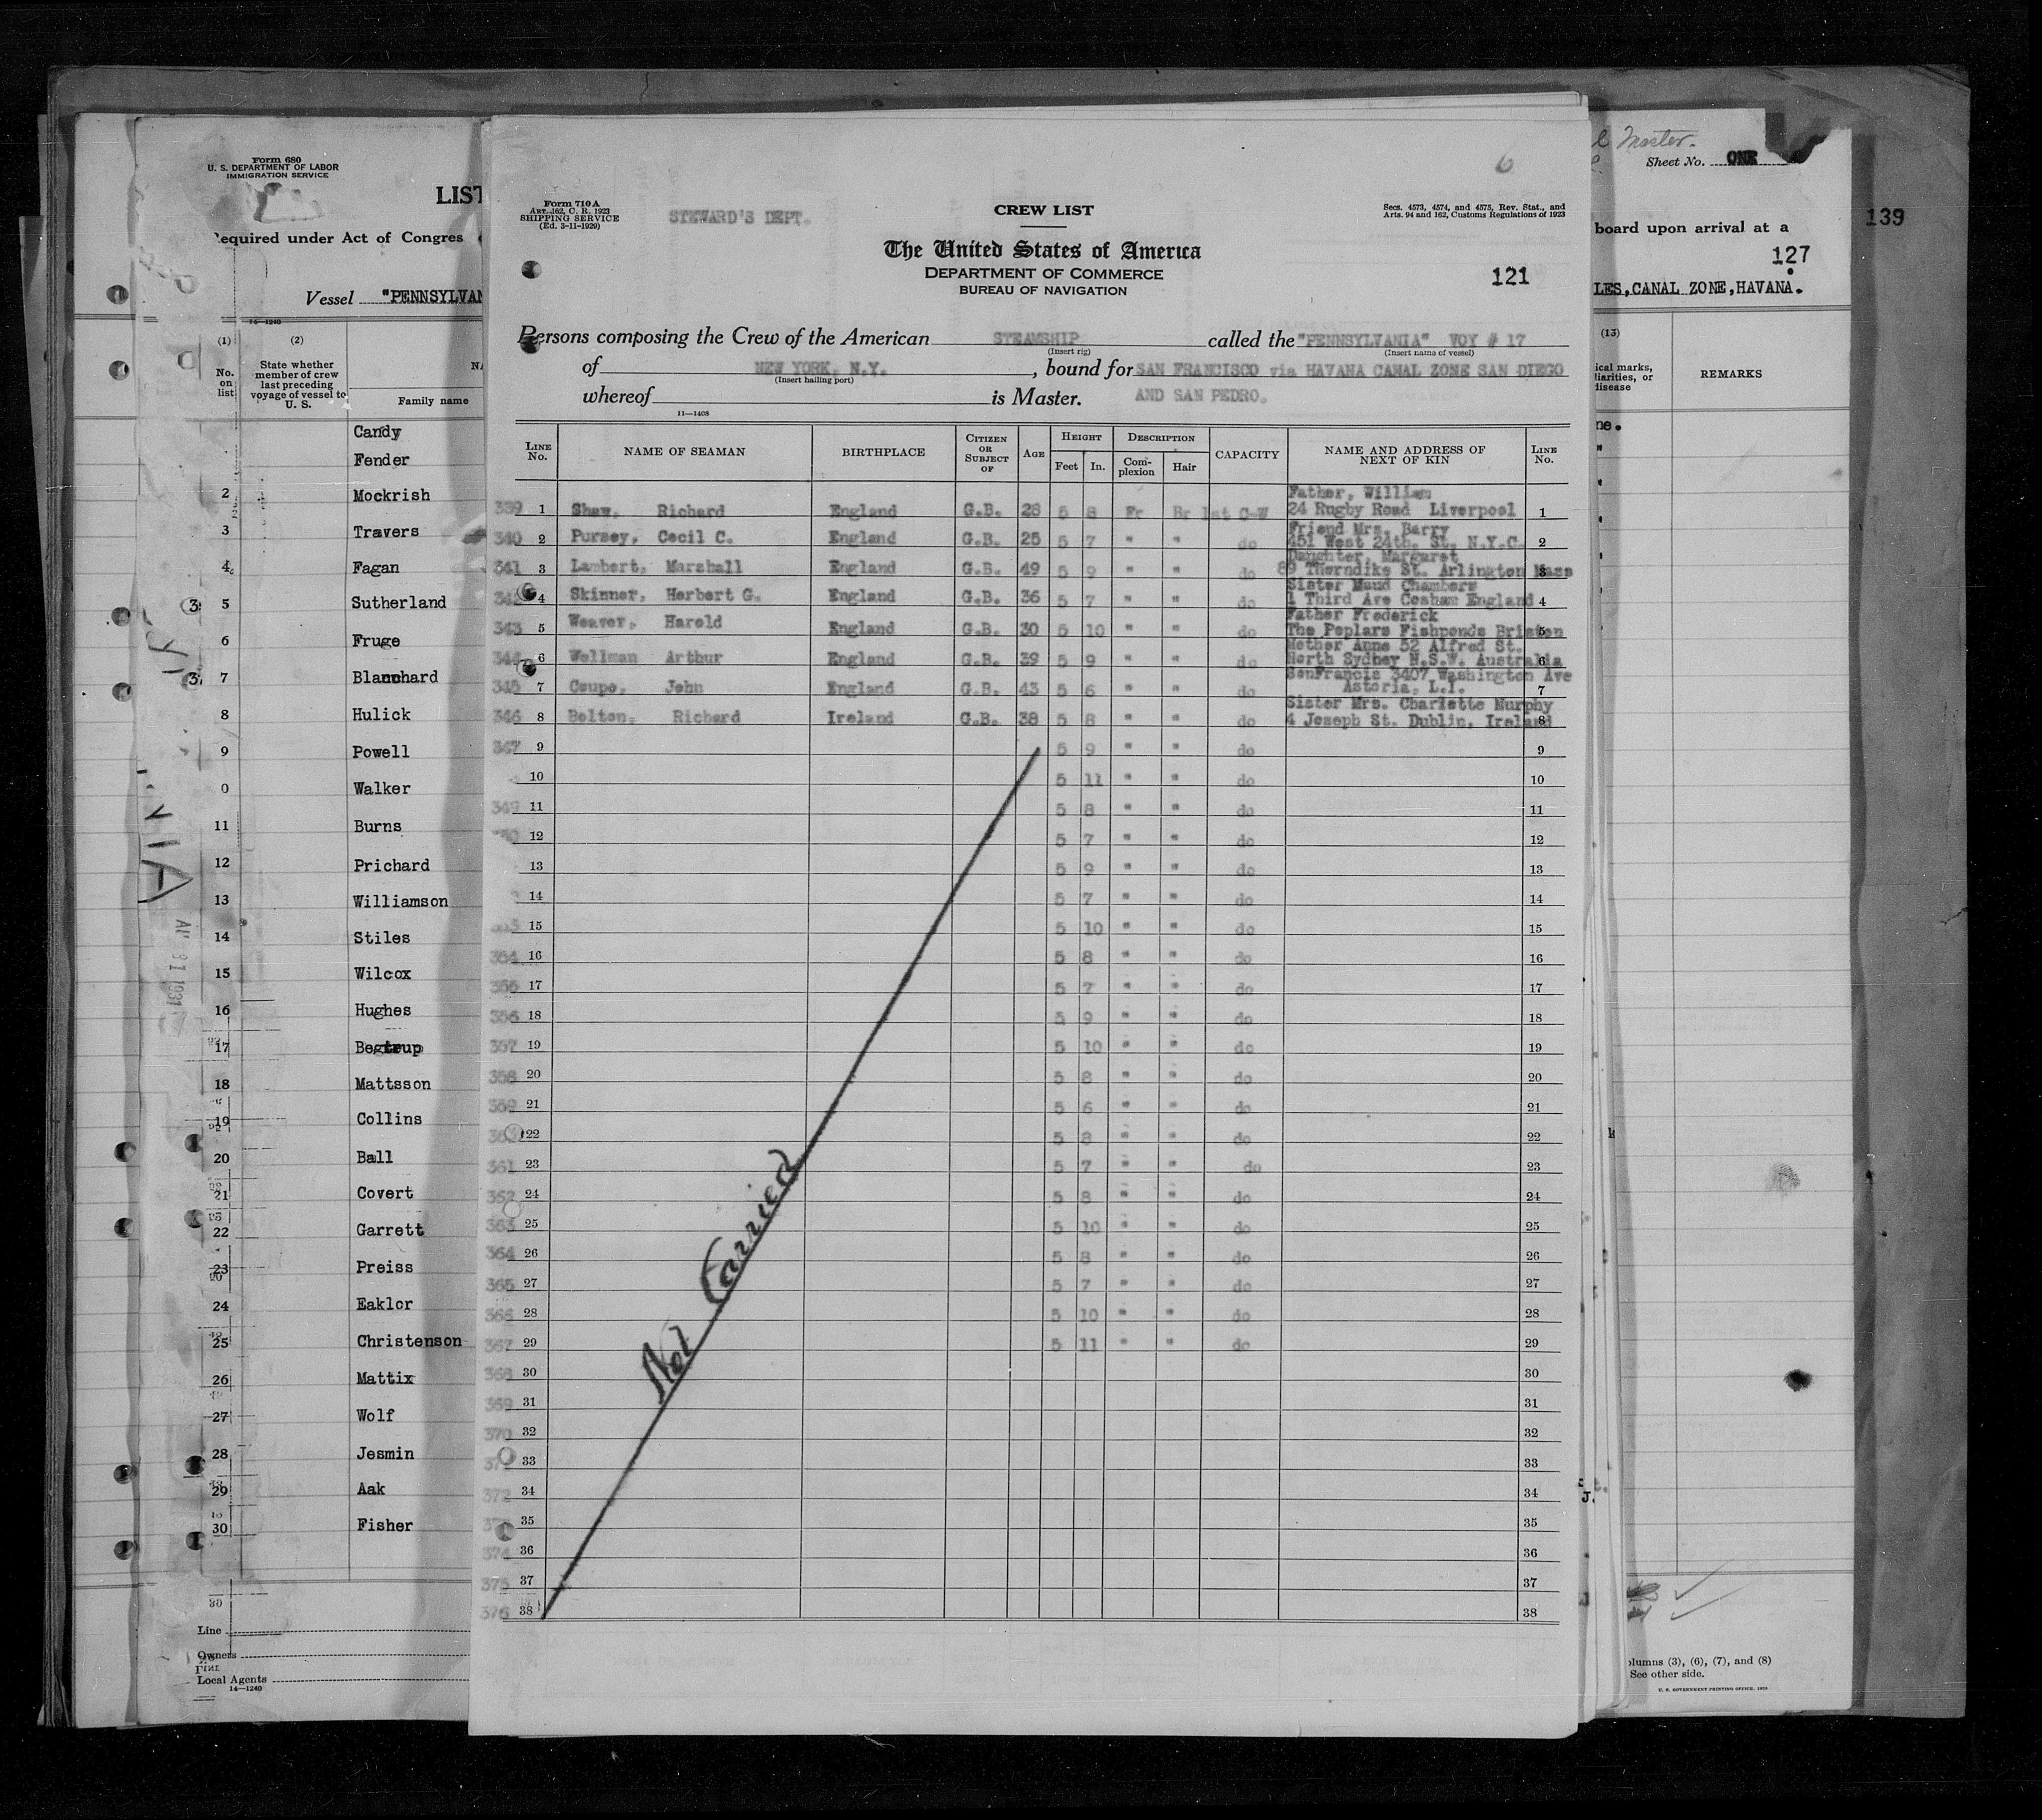 Form 680
U. S. DEPARTMENT OF LABOR
IMMIGRATION SERVICE
LIST
Required under Act of Congres
Vessel "PENNSYLVAN
14—1240
(1) (2)
No. on list
State whether member of crew last preceding voyage of vessel to U. S.
Family name
Candy
Fender
2 Mockrish
3 Travers
4 Fagan
5 Sutherland
6 Fruge
7 Blanchard
8 Hulick
9 Powell
0 Walker
11 Burns
12 Prichard
13 Williamson
14 Stiles
15 Wilcox
16 Hughes
17 Begtrup
18 Mattsson
19 Collins
20 Ball
21 Covert
22 Garrett
23 Preiss
24 Eaklor
25 Christenson
26 Mattix
27 Wolf
28 Jesmin
29 Aak
30 Fisher
30
Line
Owners
Local Agents
14—1240
6
Form 710A
ART. 162, C. R. 1923
SHIPPING SERVICE
(Ed. 3-11-1929)
STEWARD'S DEPT.
CREW LIST
Secs. 4573, 4574, and 4575, Rev. Stat., and
Arts. 94 and 162, Customs Regulations of 1923
The United States of America
DEPARTMENT OF COMMERCE
BUREAU OF NAVIGATION
121
Persons composing the Crew of the American STEAMSHIP called the "PENNSYLVANIA" VOY # 17
(Insert rig) (Insert name of vessel)
of NEW YORK, N.Y. , bound for SAN FRANCISCO via HAVANA CANAL ZONE SAN DIEGO
(Insert hailing port)
whereof is Master. AND SAN PEDRO.
11—1408
LINE No. NAME OF SEAMAN BIRTHPLACE CITIZEN OR SUBJECT OF AGE HEIGHT Feet In. DESCRIPTION Complexion Hair CAPACITY NAME AND ADDRESS OF NEXT OF KIN LINE No.
Father, William
339 1 Shaw, Richard England G.B. 28 5 8 Fr Br 1st C-W 24 Rugby Road Liverpool 1
Friend Mrs. Barry
340 2 Pursey, Cecil C. England G.B. 25 5 7 " " do 451 West 24th. St. N.Y.C. 2
Daughter, Margaret
341 3 Lambert, Marshall England G.B. 49 5 9 " " do 89 Thorndike St. Arlington Mass 3
Sister Maud Chambers
342 4 Skinner, Herbert G. England G.B. 36 5 7 " " do 1 Third Ave Cosham England 4
Father Frederick
343 5 Weaver, Harold England G.B. 30 5 10 " " do The Poplars Fishponds 5
Mother Anne 52 Alfred St.
344 6 Wellman Arthur England G.B. 39 5 9 " " do North Sydney N.S.W. Australia 6
SonFrancis 3407 Washington Ave
345 7 Coupe, John England G.B. 43 5 6 " " do Astoria, L.I. 7
Sister Mrs. Charlette Murphy
346 8 Bolton, Richard Ireland G.B. 38 5 8 " " do 4 Joseph St. Dublin, Ireland 8
347 9 5 9 " " do 9
10 5 11 " " do 10
349 11 5 8 " " do 11
12 5 7 " " do 12
13 5 9 " " do 13
14 5 7 " " do 14
15 5 10 " " do 15
354 16 5 8 " " do 16
355 17 5 7 " " do 17
356 18 5 9 " " do 18
357 19 5 10 " " do 19
358 20 5 8 " " do 20
359 21 5 6 " " do 21
22 5 8 " " do 22
361 23 5 7 " " do 23
362 24 5 8 " " do 24
363 25 5 10 " " do 25
364 26 5 8 " " do 26
365 27 5 7 " " do 27
366 28 5 10 " " do 28
367 29 5 11 " " do 29
368 30 30
369 31 31
370 32 32
33 33
372 34 34
35 35
374 36 36
375 37 37
376 38 38
Not Carried
Master.
Sheet No. ONE
139
board upon arrival at a
127
LES, CANAL ZONE, HAVANA.
(13)
ical marks,
liarities, or
disease
REMARKS
ne.
J.
olumns (3), (6), (7), and (8)
See other side.
U. S. GOVERNMENT PRINTING OFFICE